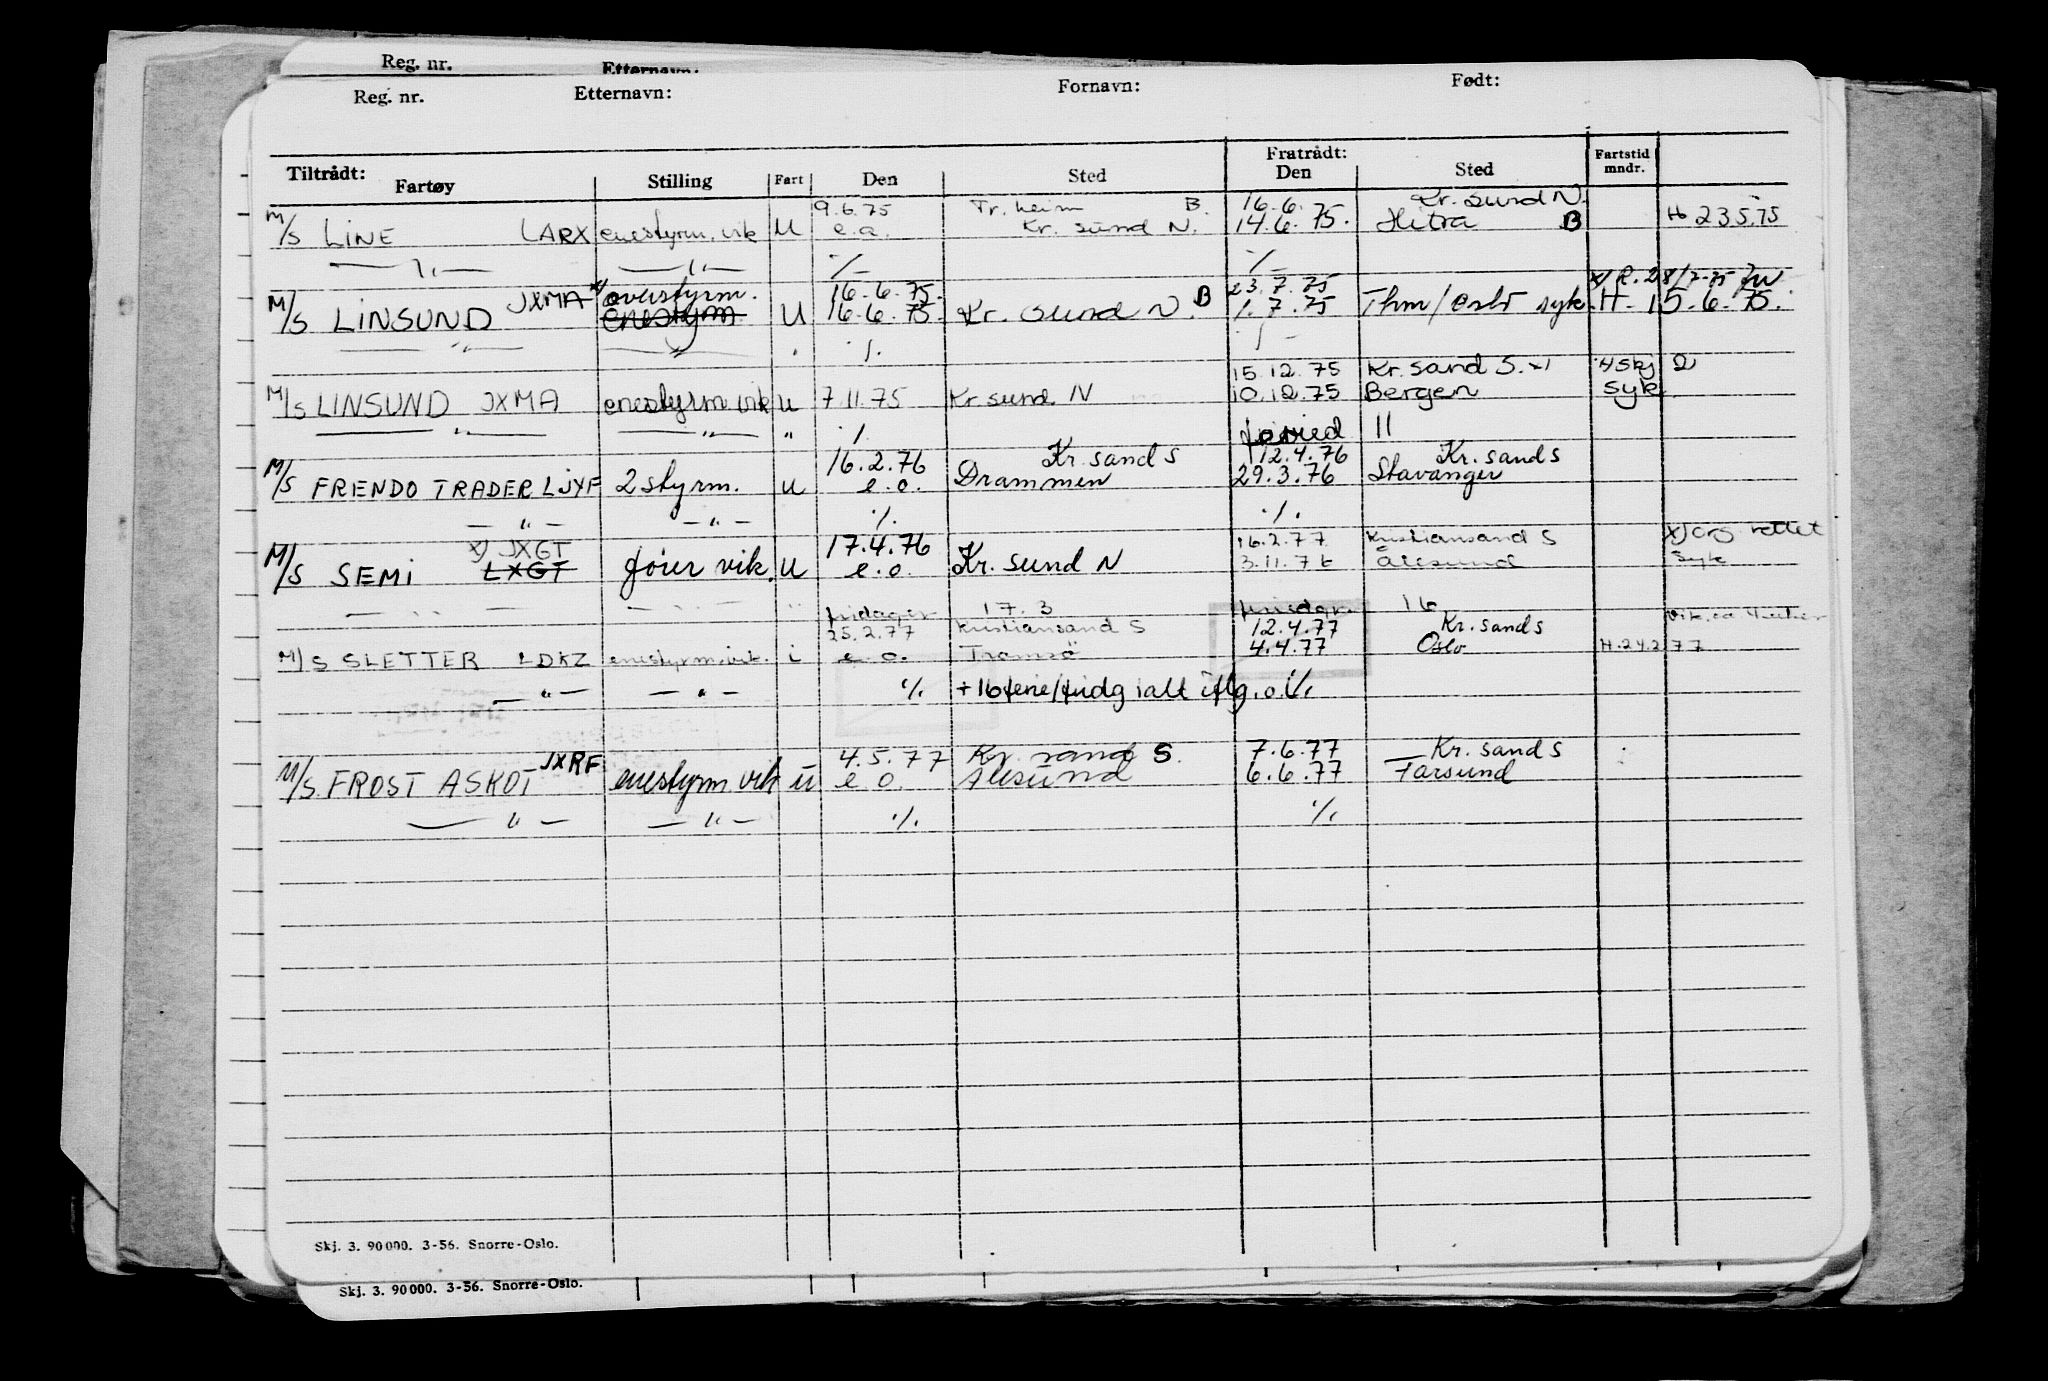 Reg. nr. Etternavn:
Reg. nr. Etternavn: Fornavn: Født:
Tiltrådt: Fratrådt: Fartstid
Fartøy Stilling Fart Den Sted Den Sted mndr.
9.6.75 Tr. heim B. 16.6. Kr. sund N.
M/S LINE LARX enestyrm. vik U e.o. Kr. sund N. 14.6.75. Hitra B H 23.5.75
— " — — " — ·/. ·/.
JXMA x/ overstyrm. 16.6.75. 23.7.75 x/ R. 28/7-75
M/S LINSUND enestyrm U 16.6.75. Kr. sund N. B 1.7.75 Thm/Oslo syk. H - 15.6.75.
— " — — " — ·/. ·/.
15.12.75 Kr. sand S. x/
M/S LINSUND JXMA enestyrm vik U 7.11.75 Kr sund N 10.12.75 Bergen syk
— " — — " — " ·/. 11
16.2.76 Kr. sand S 12.4.76 Kr. sand S
M/S FRENDO TRADER LJYF 2 styrm. U e.o. Drammen 29.3.76 Stavanger
— " — — " — ·/. ·/.
x/ JXGT 17.4.76 16.2.77 Kristiansand S x/ org rettet
M/S SEMI LXGT fører vik. U e.o. Kr. sund N 3.11.76 Ålesund syk
— " — — " — " fridager 17.3 fridgr. 16
25.2.77 Kristiansand S 12.4.77 Kr. sand S
M/S SLETTER LDKZ enestyrm. vik. i e.o. Tromsø 4.4.77 Oslo H.24.2.77
— " — — " — ·/. + 16 ferie/fridg ialt iflg. o. ·/.
JXRF 4.5.77 Kr. sand S. 7.6.77 Kr. sand S
M/S. FROST ASKOT enestyrm. vik u e.o. Ålesund 6.6.77 Farsund
— " — — " — ·/. ·/.
Skj. 3. 90 000. 3-56. Snorre-Oslo.
Skj. 3. 90 000. 3-56. Snorre-Oslo.